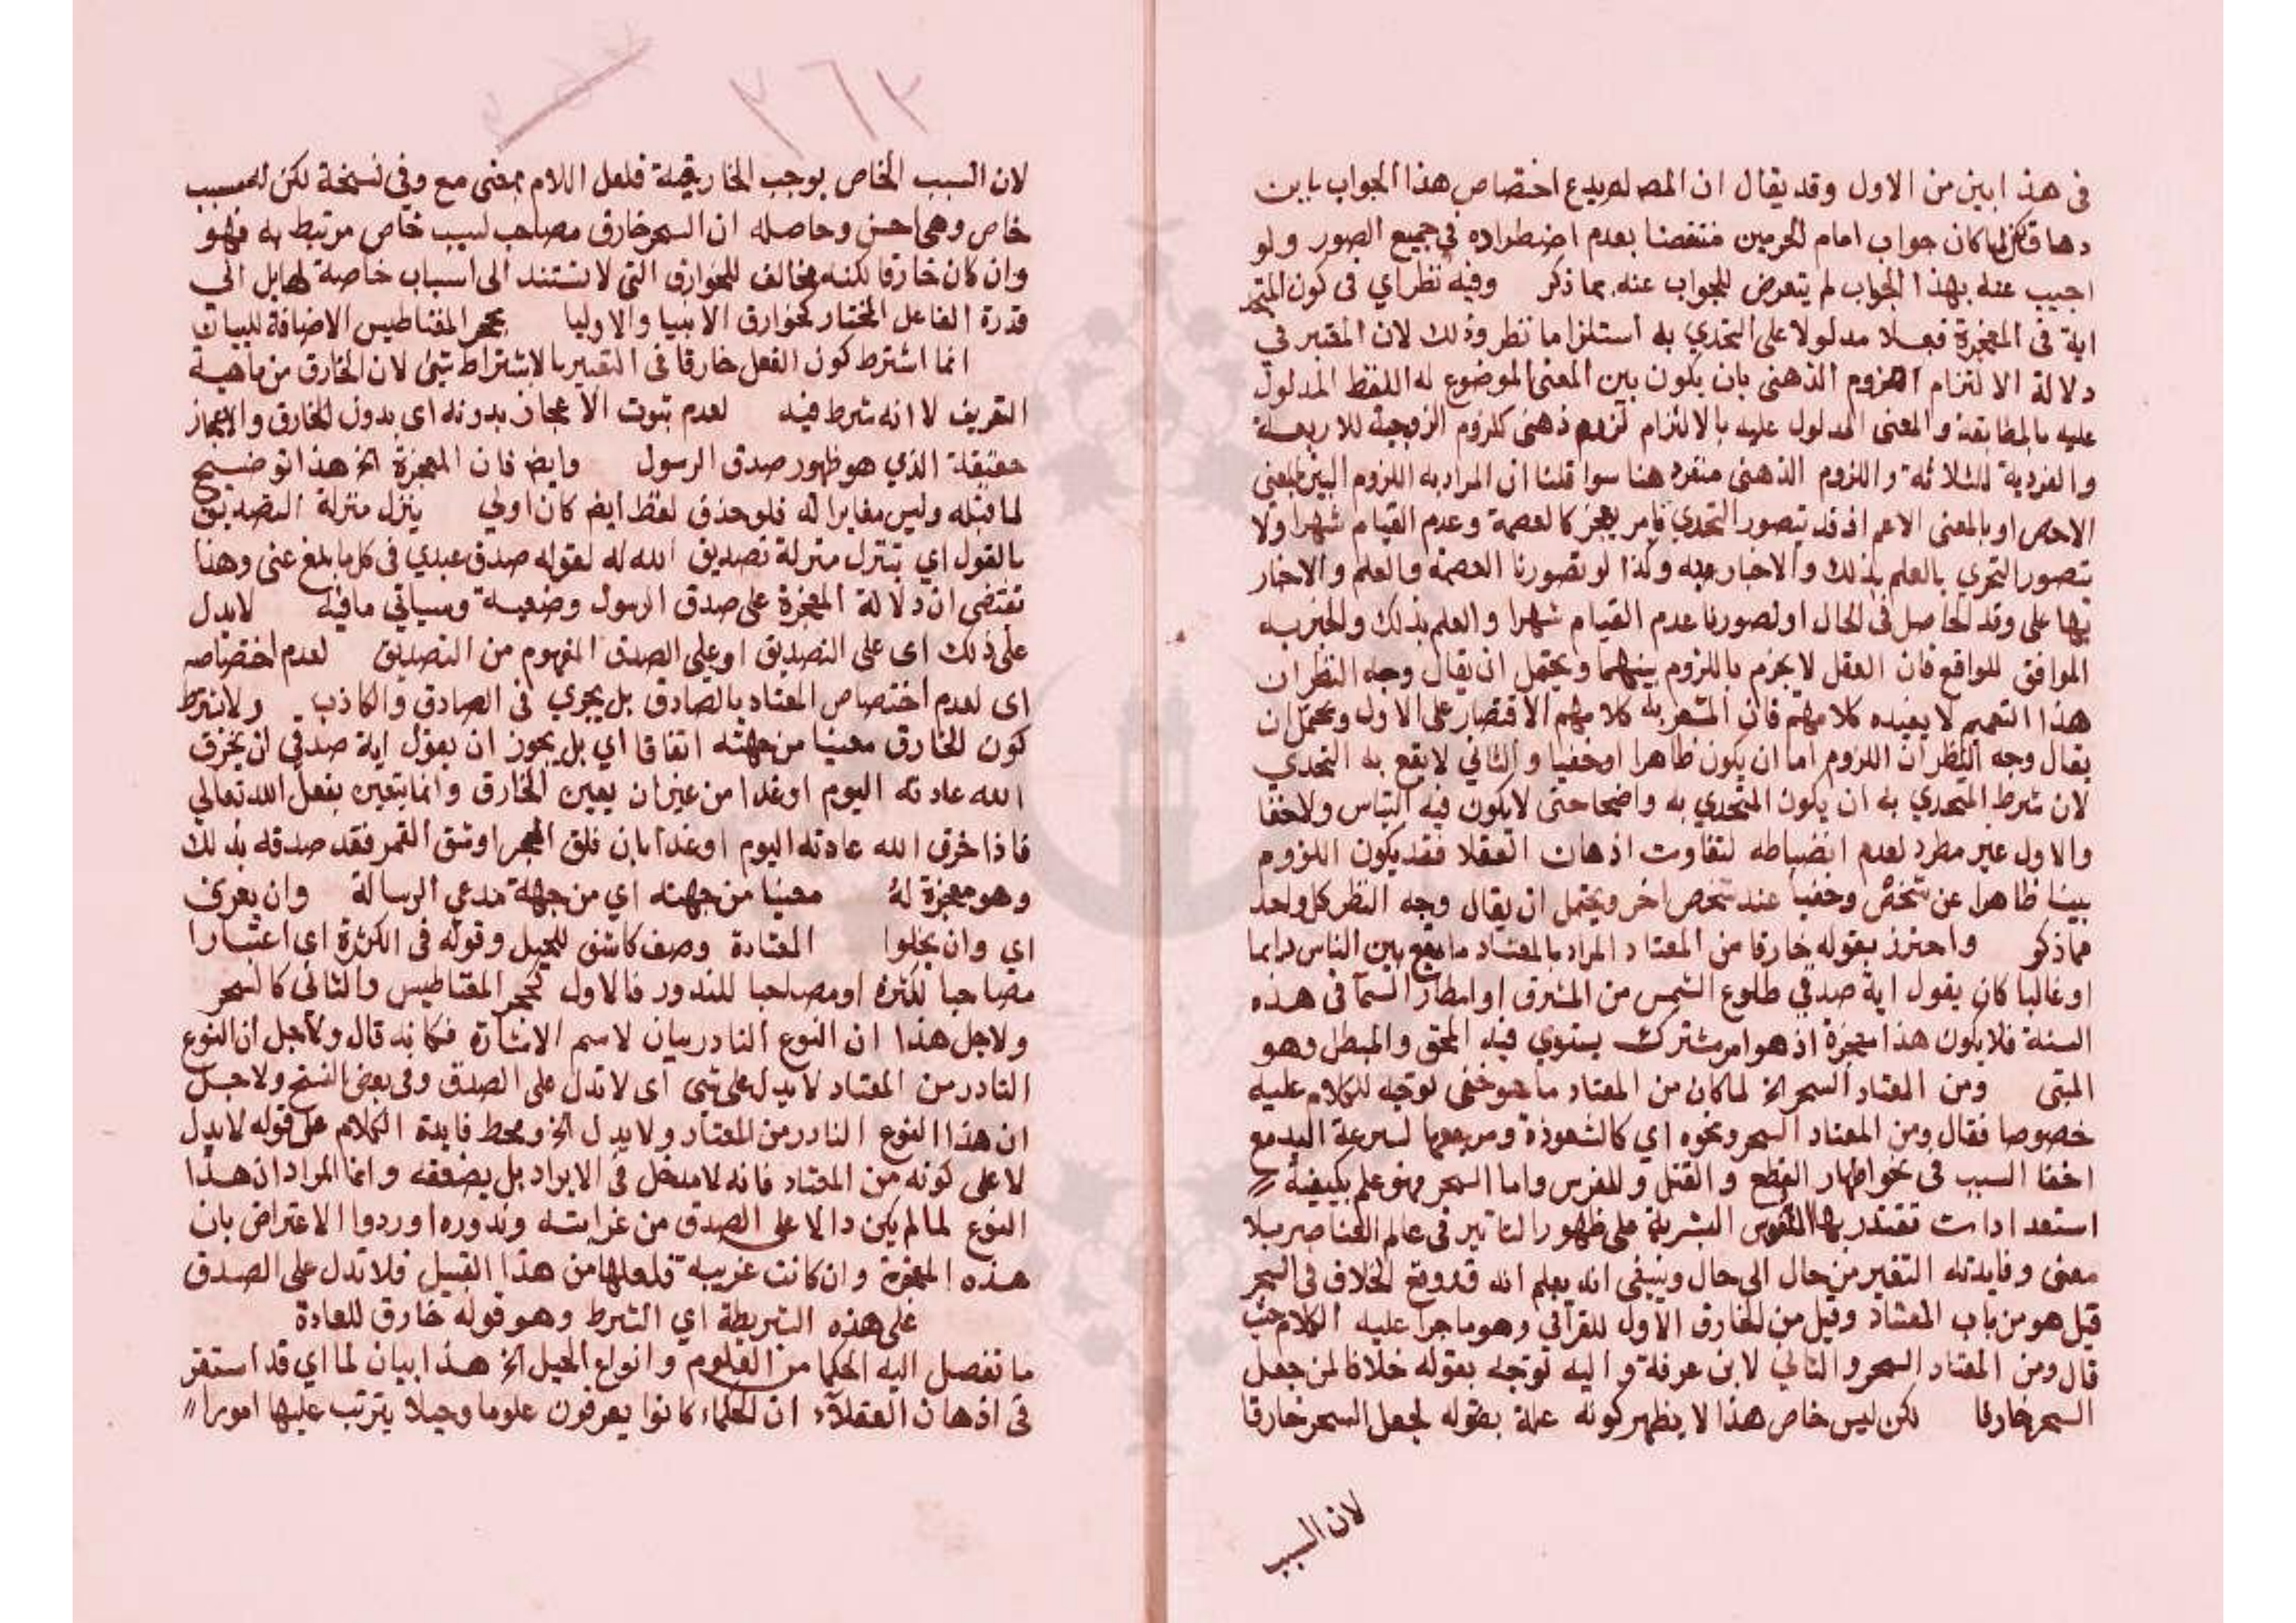 في هذا بين من الاول وقد يقال ان المصـ لم يدع اختصاص هذا الجواب باين
دهاق لما كان جواب امام الحرمين منتقضا بعدم اضطراده في جميع الصور ولو
اجيب عنه بهذا الجواب لم يتعرض للجواب عنه بما ذكر وفيه نظر اي في كون المتحد
اية في المعجزة فعلا مدلولا على التحدي به استلزاما نظر وذلك لان المعتبر في
دلالة الالتزام اللزوم الذهني بان يكون بين المعنى الموضوع له اللفظ المدلول
عليه بالمطابقة والمعنى المدلول عليه بالالتزام لزوم ذهني كلزوم الزوجية للاربعة
والفردية للثلاثة واللزوم الذهني منفرد هنا سوا قلنا ان المراد به اللزوم البين بالمعنى
الاخص او بالمعنى الاعم اذ قد يتصور التحدي بامر يعجز كالعصمة وعدم القيام شهرا ولا
يتصور التحري بالعلم بذلك والاخبار به وكذا لو تصورنا العصمة والعلم والاخبار
بها على وقد الحاصل في الحال او تصورنا عدم القيام شهرا والعلم بذلك والخبر به
الموافق للواقع فان العقل لا يجزم باللزوم بينهما ويحتمل ان يقال وجه النظر ان
هذا التعميم لا يفيده كلامهم فان المشعر به كلامهم الاقتصار على الاول ويحتمل ان
يقال وجه النظر ان اللزوم اما ان يكون ظاهرا او خفيا والثاني لا يقع به التحدي
لان شرط المتحدي به ان يكون المتحدي به واضحا حتى لا يكون فيه التباس ولا خفا
والاول غير مطرد لعدم انضباطه لتفاوت اذهان العقلا فقد يكون اللزوم
بينا ظاهرا عن شخص وخفيا عند شخص اخر ويحتمل ان يقال وجه النظر كل واحد
مما ذكر واحترز بقوله خارقا من المعتاد المراد بالمعتاد ما يقع بين الناس دايما
او غالبا كان يقول اية صدقي طلوع الشمس من المشرق او امطار السمآ في هذه
السنة فلا يكون هذا معجزة اذ هو امر مشترك يستوي فيه المحق والمبطل وهو
المتى ومن المعتاد السحر الخ لما كان من المعتاد ما هو خفي لوجه للكلام عليه
خصوصا فقال ومن المعتاد السحر ونحوه اي كالشعوذة ومرجعها لسرعة اليد مع
اخفا السبب في نحو اظهار القطع والقتل وللغرس واما السحر فهو علم بكيفية
استعدادات تقتدر بها النفوس البشرية على ظهور التاثير في عالم العناصر بلا
معنى وفايدته التغير من حال الى حال وينبغي انه يعلم انه قد وقع الخلاف في السحر
قيل هو من باب المعتاد وقيل من الخارق الاول للقرآني وهو ما جرا عليه الكلام حيث
قال ومن المعتاد السحر والثاني لابن عرفة واليه توجه بقوله خلافا لمن جعل
السحر خارقا لكن ليس خاص هذا لا يظهر كونه علة بقوله لجعل السحر خارقا
لان السبب
٢٦٢
لان السبب الخاص يوجب الخارقية فلعل اللام بمعنى مع وفي نسخة لكن لسبب
خاص وهي احسن وحاصله ان السحر خارق مصاحب لسبب خاص مرتبط به فهو
وان كان خارقا لكنه مخالف للخوارق التي لا تستند الى اسباب خاصة لها بل الى
قدرة الفاعل المختار كخوارق الانبيا والاوليا بحجر المغناطيس الاضافة للبيان
انما اشترط كون الفعل خارقا في التعبير بالاشتراط شيئ لان الخارق من ماهية
التعريف لا انه شرط فيه لعدم ثبوت الاعجاز بدونه اي بدون الخارق والاعجاز
حقيقة الذي هو ظهور صدق الرسول وايض فان المعجزة الخ هذا توضيح
لما قبله وليس مغايرا له فلو حذف لفظ ايض كان اولي ينزل منزلة التصديق
بالقول اي يتنزل منزلة تصديق الله له لقوله صدق عبدي في كل ما بلغ عني وهنا
تقتضي ان دلالة المعجزة على صدق الرسول وضعية وسياتي ما فيه لا يدل
على ذلك اي على التصديق او على الصدق المفهوم من التصديق لعدم اختصاصه
اي لعدم اختصاص المعتاد بالصادق بل يجري في الصادق والكاذب ولا نشرط
كون الخارق معينا من جهته اتفاقا اي بل يجوز ان يقول اية صدقي ان يخرق
الله عادته اليوم او غدا من غير ان يعين الخارق وانما يتعين بفعل الله تعالى
فاذا خرق الله عادته اليوم او غدا بان فلق الحجر او شق القمر فقد صدقه بذلك
وهو معجزة له معينا من جهته اي من جهة مدعي الرسالة وان يعرى
اي وان يخلوا المعتادة وصف كاشف للحيل وقوله في الكثرة اي اعتبارا
مصاحبا للكثرة او مصاحبا للندور فالاول كحجر المغناطيس والثاني كالسحر
ولاجل هذا ان النوع النادر بيان لاسم الاشارة فكانه قال ولاجل ان النوع
النادر من المعتاد لا يدل على شيئ اى لا تدل على الصدق وفي بعض النسخ ولاجل
ان هذا النوع النادر من المعتاد ولا يدل الخ ومحط فايدة الكلام على قوله لا يدل
لا على كونه من المعتاد فانه لا مدخل في الايراد بل يضعفه وانما المراد ان هذا
النوع لما لم يكن دالا على الصدق من غرابته وندوره اوردوا الاعتراض بان
هذه المعجزة وان كانت غريبة فلعلها من هذا القبيل فلا تدل على الصدق
على هذه الشريطة اي الشرط وهو قوله خارق للعادة
ما تفصل اليه الحكما من العلوم وانواع الحيل الخ هذا بيان لما اي قد استقر
في اذهان العقلآء ان الحكماء كانوا يعرفون علوما وحيلا يترتب عليها امورا